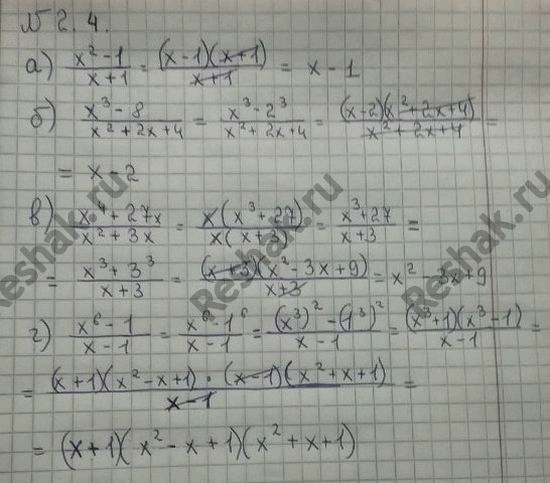 № 2. 4.
а) (x² - 1)/(x + 1) = ((x - 1)(x + 1))/(x + 1) = x - 1
б) (x³ - 8)/(x² + 2x + 4) = (x³ - 2³)/(x² + 2x + 4) = ((x - 2)(x² + 2x + 4))/(x² + 2x + 4) =
= x - 2
в) (x⁴ + 27x)/(x² + 3x) = (x(x³ + 27))/(x(x + 3)) = (x³ + 27)/(x + 3) =
= (x³ + 3³)/(x + 3) = ((x + 3)(x² - 3x + 9))/(x + 3) = x² - 3x + 9
г) (x⁶ - 1)/(x - 1) = (x⁶ - 1⁶)/(x - 1) = ((x³)² - (1³)²)/(x - 1) = ((x³ + 1)(x³ - 1))/(x - 1) =
= ((x + 1)(x² - x + 1) · (x - 1)(x² + x + 1))/(x - 1) =
= (x + 1)(x² - x + 1)(x² + x + 1)
Reshak.ru
Reshak.ru
Reshak.ru